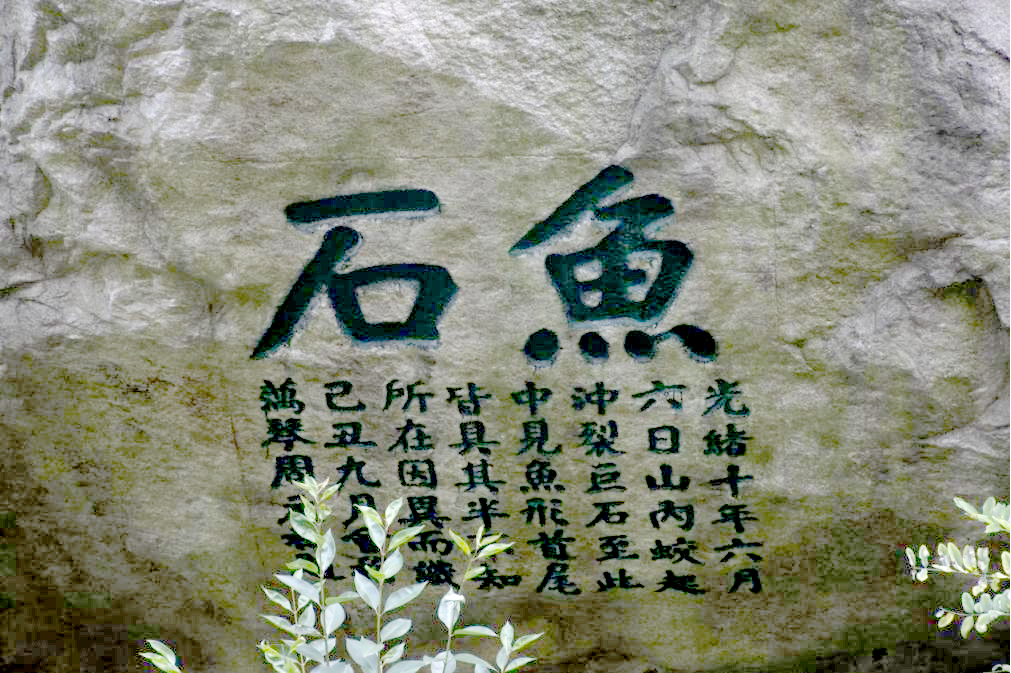 魚石
光緒十年六月
六日山內蛟起
沖裂巨石至此
中見魚形首尾
皆具其半知
所在因異而識
己丑九月
鴻琴周